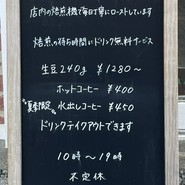 店内の焙煎機で毎日丁寧にローストしています
焙煎の待ち時間にドリンク無料サービス
生豆240g ¥1280〜
ホットコーヒー ¥400
夏季限定 水出しコーヒー ¥450
ドリンクテイクアウトできます
10時〜19時
不定休